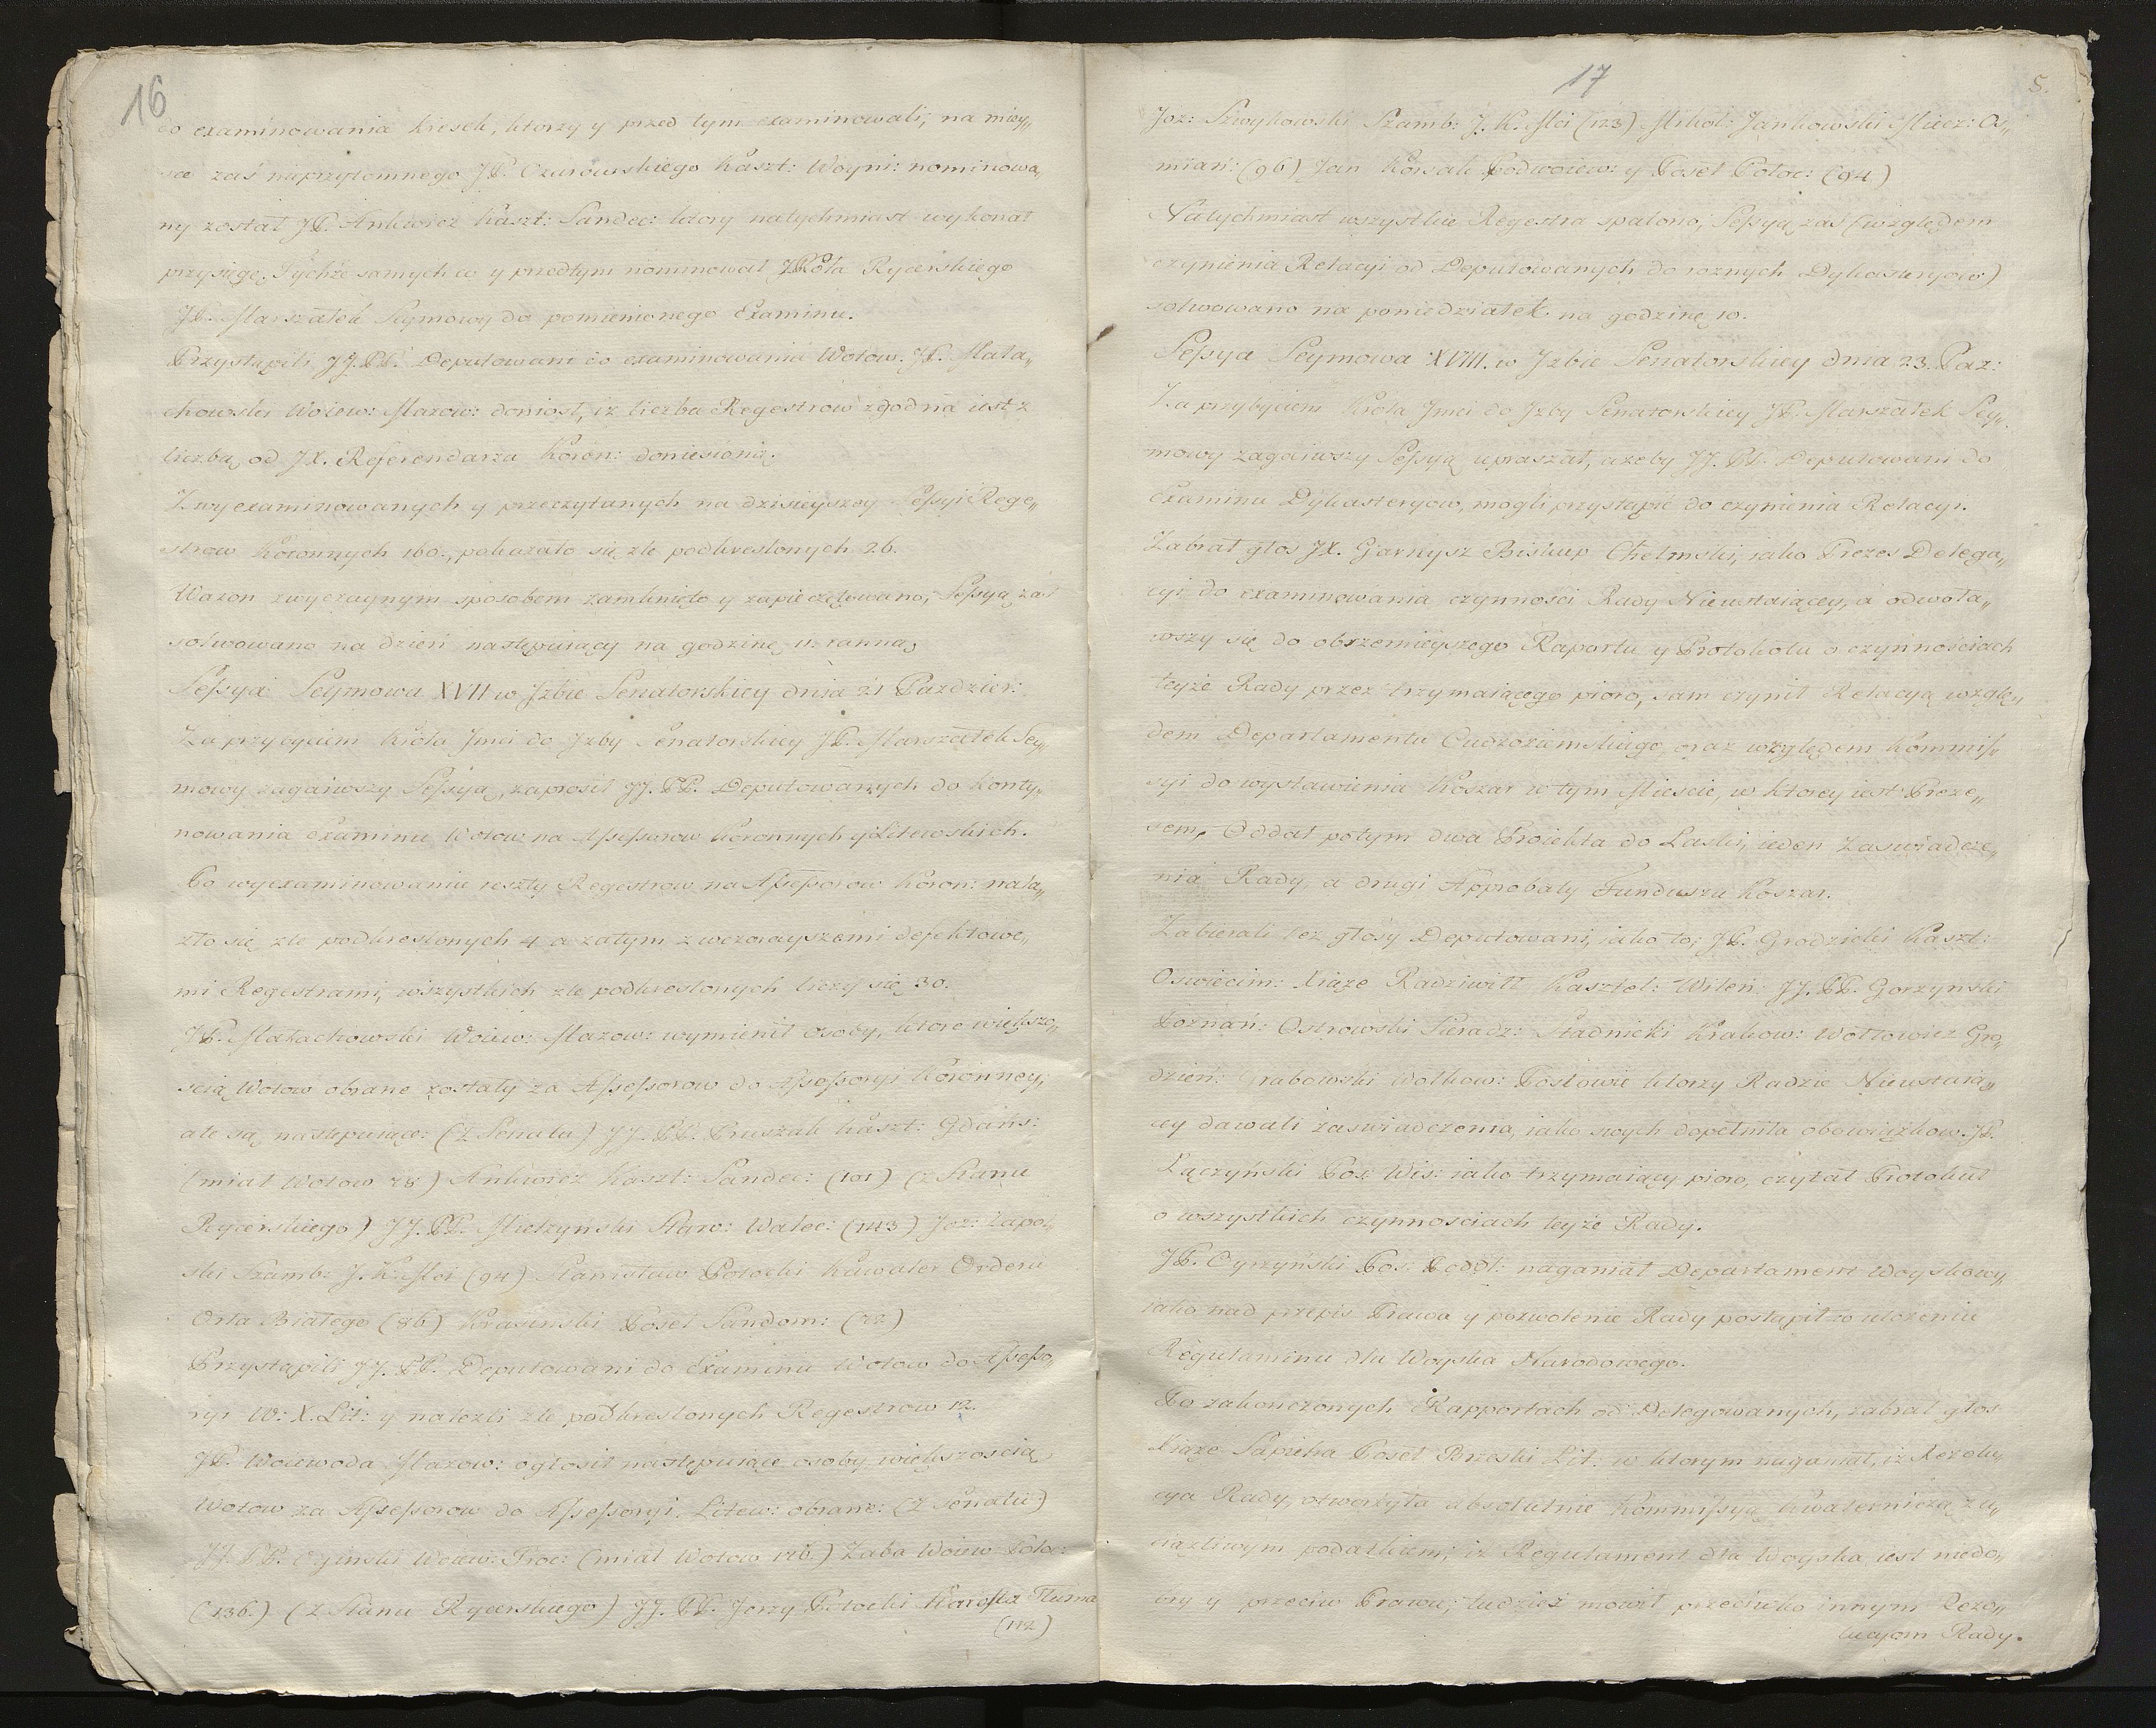 16
do examinowania kresek, ktorzy y przed tym examinowali, na miey„
sce zaś nieprzytomnego JP. Ożarowskiego Kaszt: Woyni: nominowa„
ny został JP. Ankwicz Kaszt: Sandec: ktory natychmiast wykonał
przysięgę. Tychże samych co y przedtym nominował z Koła Rycerskiego
JP. Marszałek Seymowy do pomienionego Examinu.
Przystąpili JJ. PP. Deputowani do examinowania Wotow. JP. Mała„
chowski Woiew: Mazow: doniosł, iz liczba Regestrow zgodna iest z
liczbą od JX. Referendarza Koron: doniesioną.
Z wyexaminowanych y przeczytanych na dzisieyszey Sessyi Rege„
strow Koronnych 160., pokazało się zle podkreslonych 26.
Wazon zwyczaynym sposobem zamknięto y zapieczętowano; Sessyą zaś
solwowano na dzień następuiący na godzinę 11. ranną.
Sessya Seymowa XVII w Jzbie Senatorskiey dnia 21 Pazdzier:
Za przybyciem Krola Jmci do Jzby Senatorskiey JP. Marszałek Sey„
mowy zagaiwszy Sessyą, zaprosił JJ. PP. Deputowanych do konty„
nowania Examinu Wotow na Assessorow Koronnych y Litewskich.
Po wyexaminowaniu reszty Regestrow na Assessorow Koron: nala„
zło się zle podkreslonych 4. a zatym z wczorayszemi defektowe„
mi Regestrami, wszystkich zle podkreslonych liczy się 30.
JP. Małachowski Woiew: Mazow: wymienił osoby, ktore większo„
scią Wotow obrane zostały za Assessorow do Assessoryi Koronney,
ale są następuiące: (z Senatu) JJ. PP. Pruszak Kaszt: Gdańs:
(miał Wotow 78) Ankwicz Kaszt: Sandec: (101) (z Stanu
Rycerskiego) JJ. PP. Mielzyński Starw: Wałec: (143) Joz: Zapol„
ski Szamb: J. K. Mci (94) Stanisław Potocki Kawaler Orderu
Orła Białego (86) Krasinski Poseł Sandom: (72)
Przystąpili JJ. PP. Deputowani do Examinu Wotow do Assesso„
ryi W: X. Lit: y nalezli zle podkreslonych Regestrow 12.
JP. Woiewoda Mazow: ogłosił następuiące osoby większoscią
Wotow za Assessorow do Assessoryi Litew: obrane: (z Senatu)
JJ. PP. Oginski Woiew: Troc: (miał Wotow 126.) Zaba Woiew Poloc:
(136.) (z Stanu Rycerskiego) JJ. PP. Jerzy Potocki Starosta Tłuma
(112)
17
5.
Joz: Szwykowski Szamb: J. K. Mci (123) Mikoł: Jankowski Miecz: Os„
miań: (96) Jan Korsak Podwoiew: y Poseł Poloc: (94)
Natychmiast wszystkie Regestra spalono; Sessyą zaś (względem
czynienia Relacyi od Deputowanych do roznych Dykasteryow)
solwowano na poniedziałek na godzinę 10.
Sessya Seymowa XVIII. w Jzbie Senatorskiey dnia 23. Paz:
Za przybyciem Krola Jmci do Jzby Senatorskiey JP. Marszałek Sey„
mowy zagaiwszy Sessyą upraszał, azeby JJ. PP. Deputowani do
Examinu Dykasteryow, mogli przystąpić do czynienia Relacyi.
Zabrał głos JX. Garnysz Biskup Chełmski, iako Prezes Delega„
cyi do examinowania czynnosci Rady Nieustaiącey, a odwoła„
wszy się do obszernieyszego Raportu y Protokołu o czynnosciach
teyże Rady przez trzymaiącego pioro, sam czynił Relacyą wzglę„
dem Departamentu Cudzoziemskiego, oraz względem Kommis„
syi do wystawienia Koszar w tym Miescie, w ktorey iest Preze„
sem. Oddał potym dwa Proiekta do Laski, ieden Zaswiadcze„
nia Rady, a drugi Approbaty Funduszu Koszar.
Zabierali tez głosy Deputowani, iako to; JP. Grodzicki Kaszt:
Oswiecim: Xiąże Radziwiłł Kasztel: Wileń: JJ. PP. Gorzyński
Poznań: Ostrowski Sieradz: Stadnicki Krakow: Wołłowicz Gro„
dzień: Grabowski Wołkow: Posłowie ktorzy Radzie Nieustaią„
cey dawali zaswiadczenia, iako swych dopełniła obowiązkow. JP.
Łączyński Pos: Wis: iako trzymaiący pioro, czytał Protokuł
o wszystkich czynnosciach teyże Rady.
JP. Cyryński Pos: Podol: naganiał Departament Woyskowy,
iako nad przepis Prawa y pozwolenie Rady postąpił w ułozeniu
Regulaminu dla Woyska Narodowego.
Po zakończonych Rapportach od Delegowanych, zabrał głos
Xiąże Sapieha Poseł Brzeski Lit: w ktorym naganiał, iz Rezolu„
cya Rady, otworzyła absolutnie Kommissyą kwaterniczą, za„
ciązliwym podatkiem; iz Regulament dla Woyska iest niedo„
bry y przeciw Prawu; tudzież mowił przeciwko innym Rezo„
lucyom Rady.